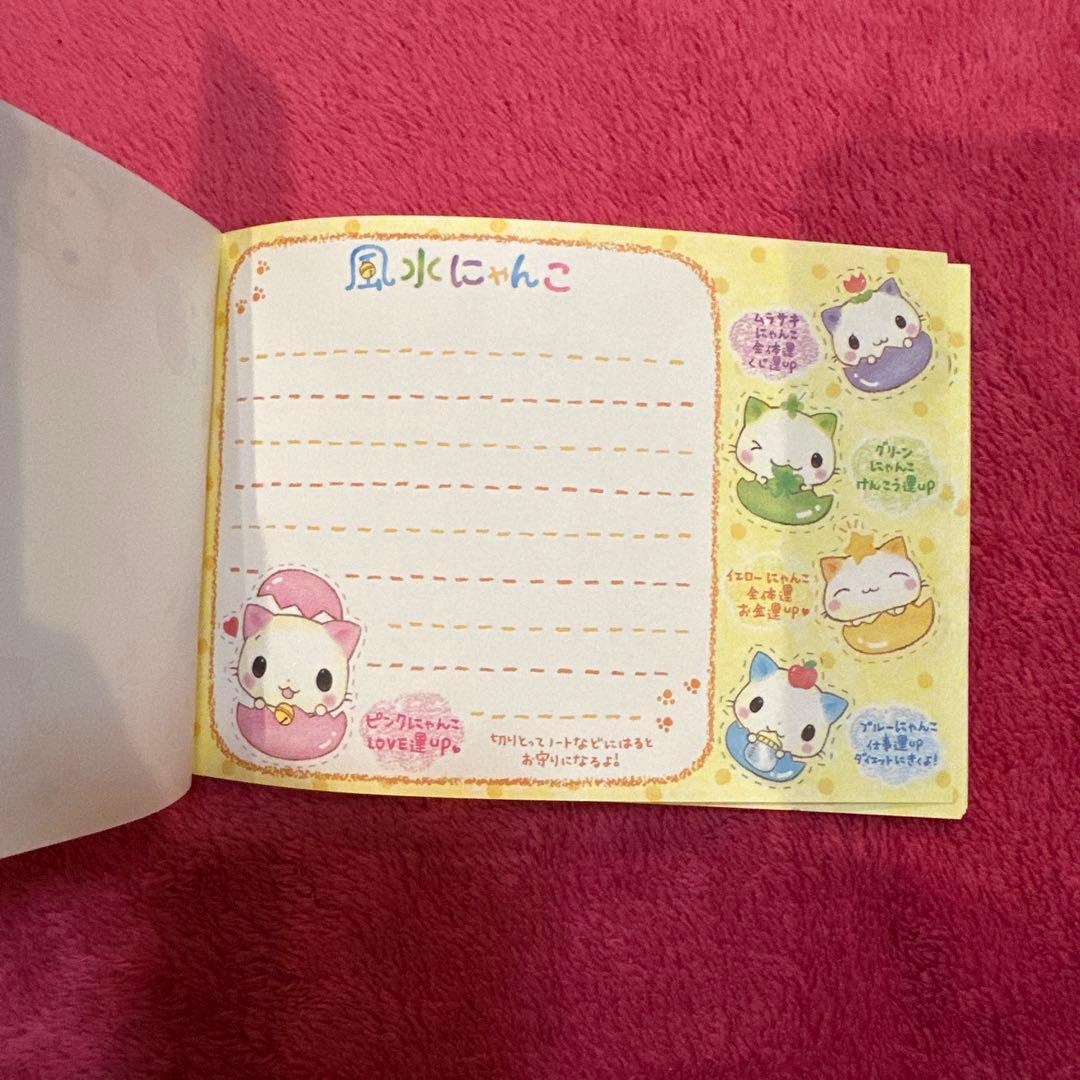 風水にゃんこ
ムラサキ
にゃんこ
全体運
くじ運up
グリーン
にゃんこ
けんこう運up
イエローにゃんこ
全体運
お金運up♥
ブルーにゃんこ
仕事運up
ダイエットにきくよ!
ピンクにゃんこ
LOVE運up♥
切りとってノートなどにはると
お守りになるよ!